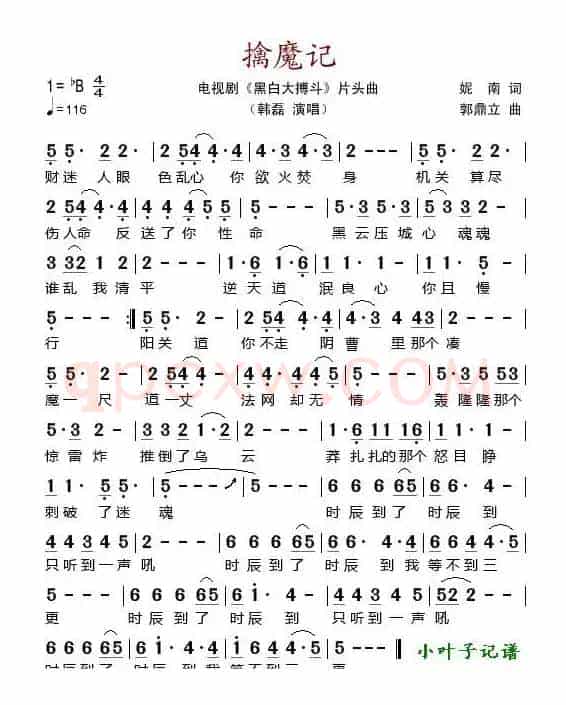 擒魔记
1=♭B 4/4
♩=116
电视剧《黑白大搏斗》片头曲
（韩磊 演唱）
妮 南 词
郭鼎立 曲
5 5· 2 2· | 2 54 4· | 4 3· 4·3 | 2 - - - | 5 5· 2 2· |
财迷 人眼 色乱心 你 欲火焚 身 机关 算尽
2 54 4· | 4 4 4 5 5 | 5 - - - | 5·3 5·3 5 | 6 3 3· |
伤人命 反送了你 性命 黑云压城心 魂魂
3 32 2 1 | 2 - - - | 1·6 1·6 | 1·6 1· | 1 1 5· |
谁乱 我清平 逆天道 泯良心 你且 慢
5 - - - :|| 5 1·3 | 2 - - - | 2 54 4·4 | 4·3 4 43 |
行 阳关 道 你不走 阴曹 里那个凑
5 5· 2· | 2 54 4· | 4 3 4 3 | 2 - - - | 3·5 5 53 |
魔一 尺 道一丈 法网却无 情 轰隆隆那个
5·3 2 - | 3 3 2 1·2 | 2 - - - | 1·6 11 16 | 1 6 1· |
惊雷炸 推倒了乌 云 莽扎扎的那个怒目睁
1 1 5· 5 | 5 - - - | 5 - - - | 6 6 6 65 | 6 6 4 - |
刺破 了迷 魂 时辰到了 时辰 到
4 43 4 5 | 2 - - - | 6 6 6 65 | 6 6 4 - | 4 4 3 4 5 |
只听到一声吼 时辰到了 时辰 到 我等不到三
5 - - - | 6 6 6 65 | 6 1· - | 4 4 3 4 5 | 52 2 - - |
更 时辰到了 时辰 到 只听到一声吼
小叶子记谱
qpcxw.COM